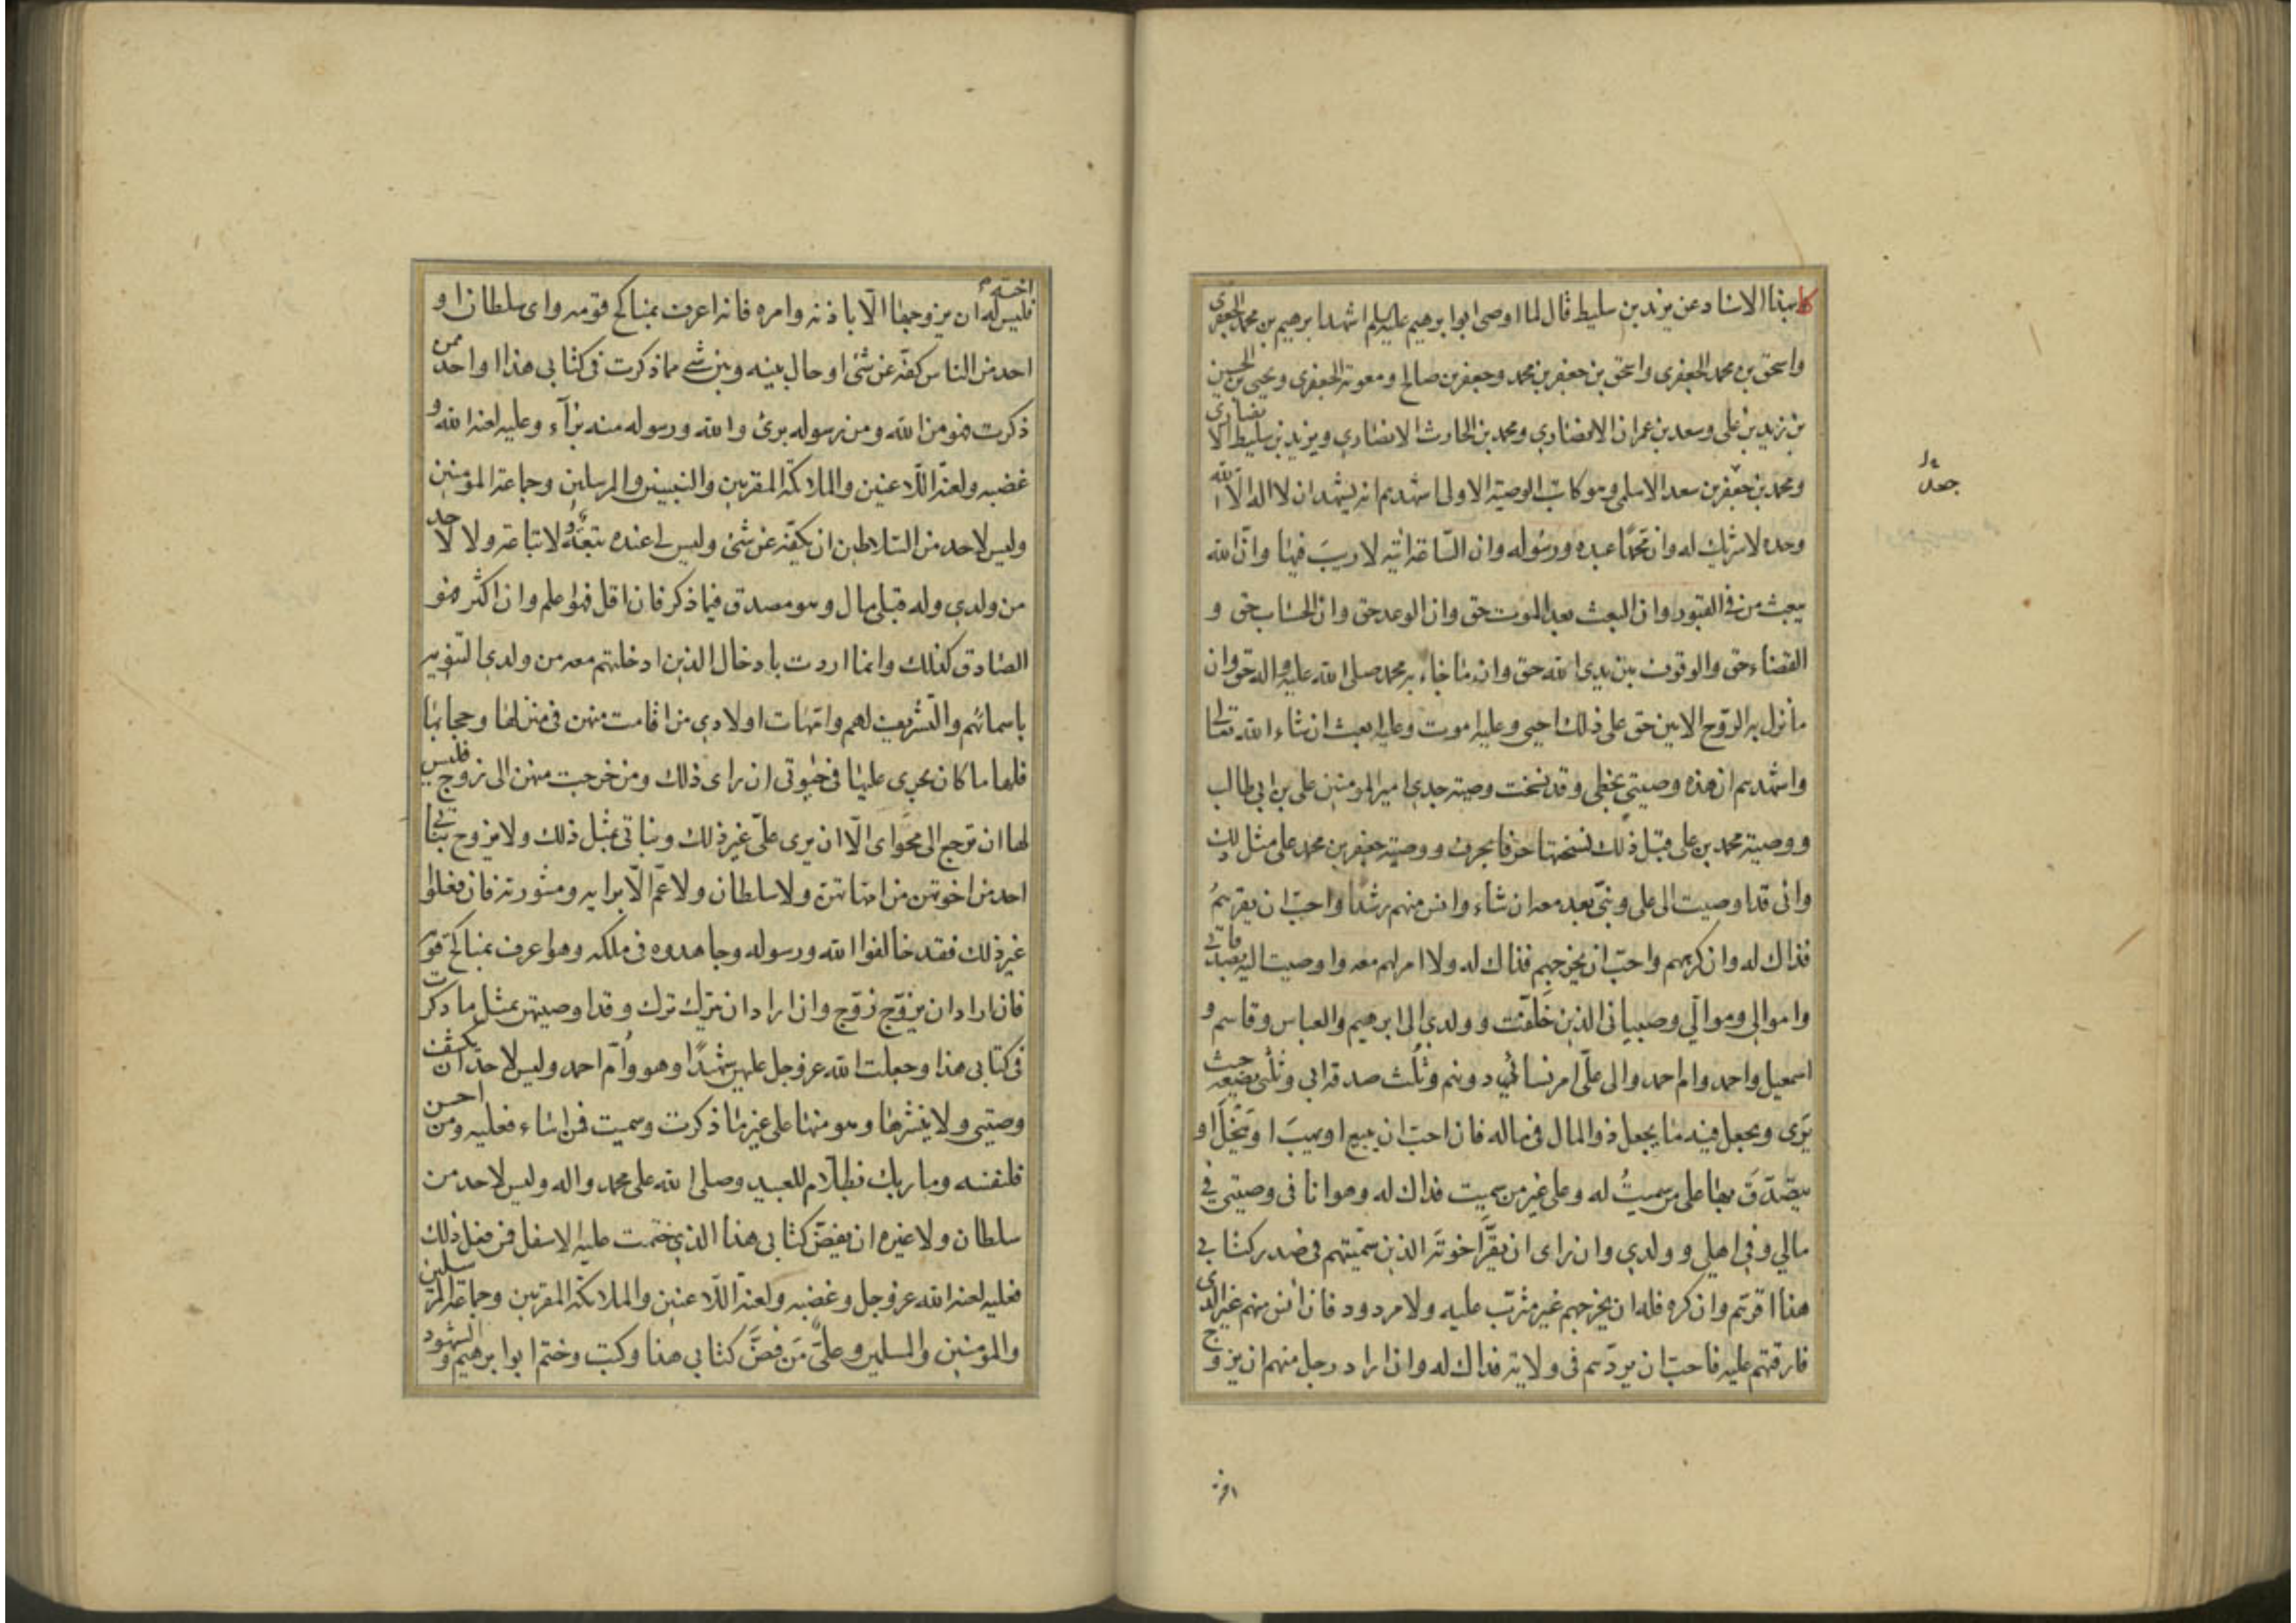 كا بهذا الاسناد عن يزيد بن سليط قال لما اوصى ابو ابرهيم عليه السلم اشهد ابرهيم بن محمد الجعفرى
واسحق بن محمد الجعفرى واسحق بن جعفر بن محمد وجعفر بن صالح ومعوية الجعفرى ويحيى بن الحسين
بن زيد بن على وسعد بن عمران الانصارى ومحمد بن الحارث الانصارى ويزيد بن سليط الانصارى
ومحمد بن جعفر بن سعد الاسلمى وهو كاتب الوصية الاولى اشهدهم انه يشهد ان لا اله الا الله
وحده لا شريك له وان محمدًا عبده ورسوله وان الساعة اتية لا ريبَ فيها وانّ الله
يبعث من فى القبور وان البعث بعد الموت حق وان الوعد حق وان الحساب حق و
القضاء حق والوقوف بين يدى الله حق وان ما جاء به محمد صلى الله عليه واله حق وان
ما نزل به الروح الامين حق على ذلك احيى وعليه اموت وعليه ابعث ان شاء الله تعالى
واشهدهم ان هذه وصيتى بخطى وقد نسخت وصية جدى امير المومنين على بن ابى طالب
ووصية محمد بن على قبل ذلك نسختها حرفا بحرف ووصية جعفر بن محمد على مثل ذلك
وانى قد اوصيت الى على وبنىّ بعد معه ان شاء وانس منهم رشدا واحبّ ان يقرهمُ
فذاك له وان كرههم واحبّ ان يخرجهم فذاك له ولا امر لهم معه واوصيت اليه بصدقاتى
واموالى وموالى وصبيانى الذين خلّفت وولدى الى ابرهيم والعباس وقاسم و
اسمعيل واحمد وام احمد والى علّى امر نسائى دونهم وثلث صدقة ابى وثلثى يضعه حيث
يَرى ويجعل فيه ما يجعل ذو المال فى ماله فان احب ان يبيع او يهبَ او ينحل او
يتصّدّقَ بها على من سميتُ له وعلى غير من سميت فذاك له وهو انا فى وصيتى فى
مالى وفى اهلى وولدى وان راى ان يقرّ اخوتَه الذين سمّيتهم فى صدر كتابى
هذا اقرّهم وان كره فله ان يخرجهم غير مثرّب عليه ولا مردود فان انس منهم غير الذى
فارقتهم عليه فاحبّ ان يردّهم فى ولاية فذاك له وان اراد رجل منهم ان يزوج
اخته
جعل
اخته
فليس له ان يزوجها الّا باذنه وامره فانه اعرف بمناكح قومه واى سلطان او
احد من الناس كفّه عن شئ او حال بينه وبين شئ مما ذكرت فى كتابى هذا او احد ممن
ذكرت فهو من الله ومن رسوله برئ والله ورسوله منه برآء وعليه لعنة الله و
غضبه ولعنة اللّاعنين والملائكة المقربين والنبيين والمرسلين وجماعة المؤمنين
وليس لاحد من السّلاطين ان يكفّه عن شئ وليس لى عنده تبعة ولا تباعة ولا لاحد
من ولدى وله قبلى مال وهو مصدق فيما ذكر فان اقل فهو اعلم وان اكثر فهو
الصادق كذلك وانما اردت بادخال الذين ادخلتهم معه من ولدى التنويه
باسمائهم والتّشريف لهم وامّهات اولادى من اقامت منهن فى منزلها وحجابها
فلها ما كان يجرى عليها فى حيوتى ان راى ذلك ومن خرجت منهن الى زوج فليس
لها ان ترجع الى محواى الّا ان يرى علّى غير ذلك وبناتى بمثل ذلك ولا يزوج بناتى
احد من اخوتهن من امهاتهنّ ولا سلطان ولا عمّ الّا برايه ومشورته فان فعلوا
غير ذلك فقد خالفوا الله ورسوله وجاهدوه فى ملكه وهو اعرف بمناكح قومه
فان اراد ان يزوّج زوّج وان اراد ان يترك ترك وقد اوصيتهن بمثل ما ذكرت
فى كتابى هذا وجعلت الله عز وجل عليهن شهيدًا وهو وأمّ احمد وليس لاحد ان يكشف
وصيتى ولا ينشرها وهو منها على غير ما ذكرت وسميت فمن اساء فعليه ومن احسن
فلنفسه وما ربك بظلّام للعبيد وصلى الله على محمد واله وليس لاحد من
سلطان ولا غيره ان يفضّ كتابى هذا الذى ختمت عليه الاسفل فمن فعل ذلك
فعليه لعنة الله عز وجل وغضبه ولعنة اللّاعنين والملائكة المقربين وجماعة المرسلين
والمؤمنين والمسلمين وعلى مَن فضَّ كتابى هذا وكتب وختم ابو ابرهيم والشهود